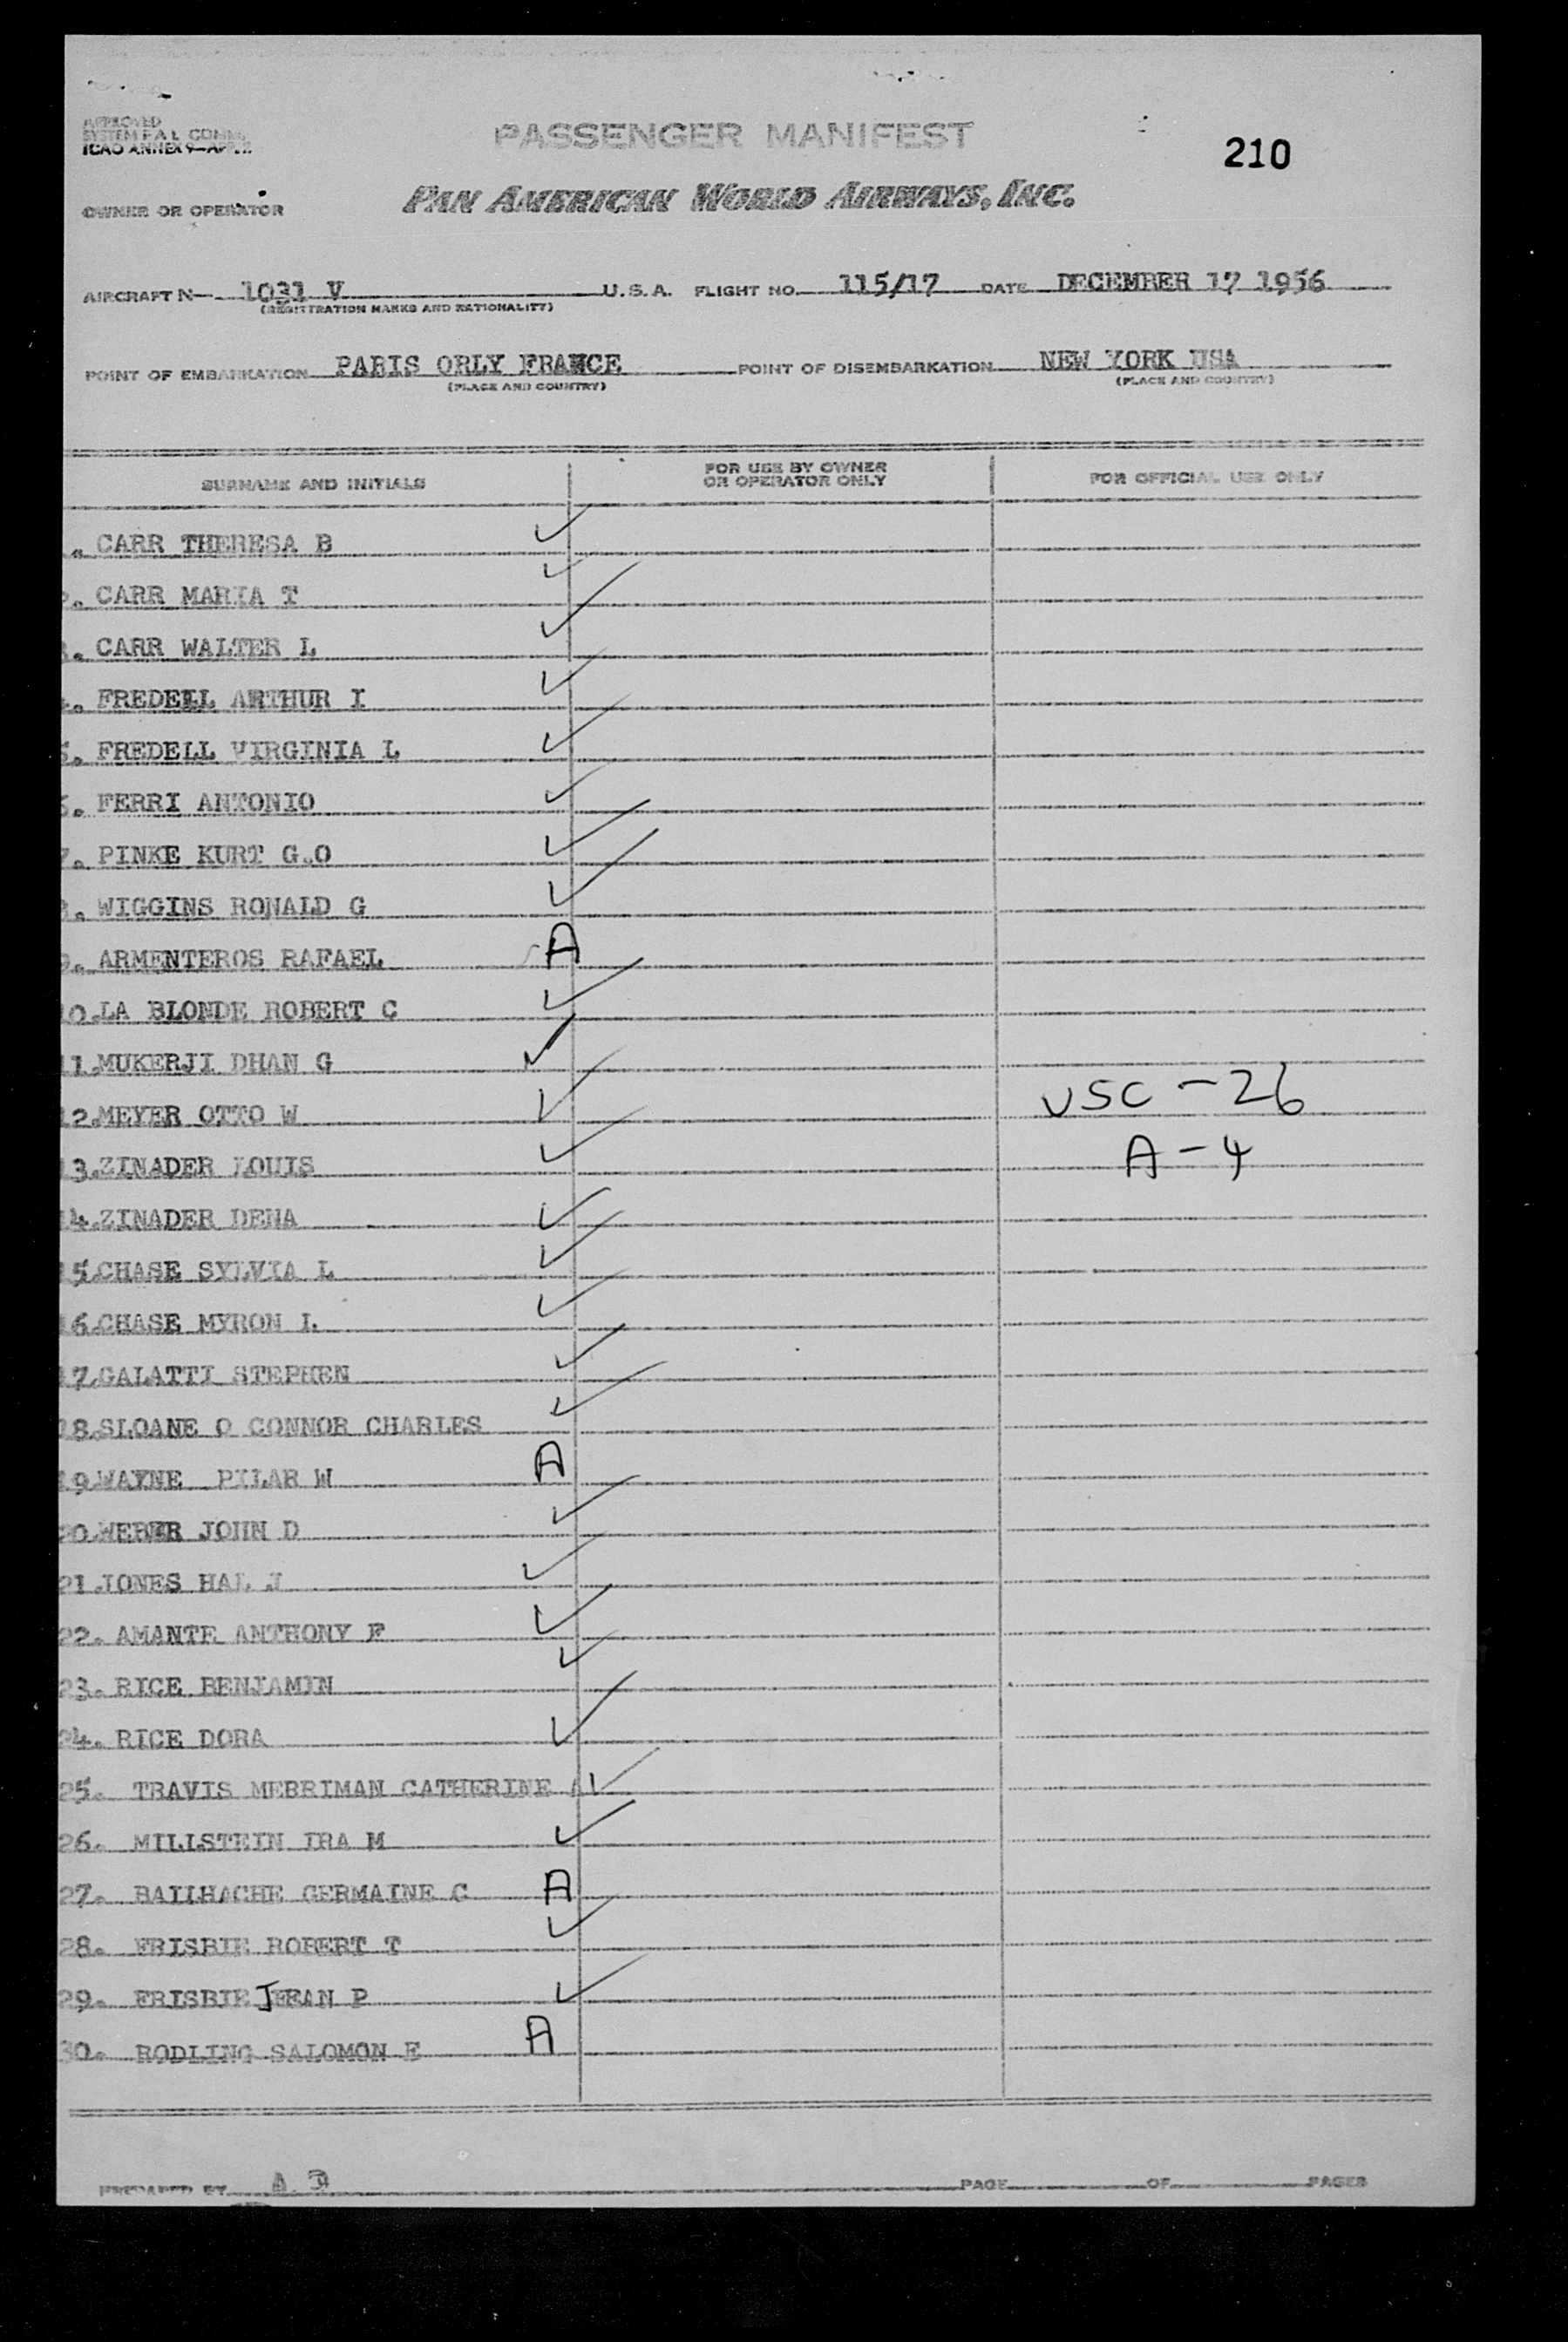 APPROVED
SYSTEM F.A.L. COMM.
ICAO ANNEX 9—APP. 2
PASSENGER MANIFEST
210
OWNER OR OPERATOR
PAN AMERICAN WORLD AIRWAYS, INC.
AIRCRAFT N— 1031 V U.S.A. FLIGHT NO. 115/17 DATE DECEMBER 17 1956
(REGISTRATION MARKS AND NATIONALITY)
POINT OF EMBARKATION PARIS ORLY FRANCE POINT OF DISEMBARKATION NEW YORK USA
(PLACE AND COUNTRY) (PLACE AND COUNTRY)
SURNAME AND INITIALS FOR USE BY OWNER OR OPERATOR ONLY FOR OFFICIAL USE ONLY
. CARR THERESA B ✓
. CARR MARIA T ✓
. CARR WALTER L ✓
. FREDELL ARTHUR I ✓
5. FREDELL VIRGINIA L ✓
6. FERRI ANTONIO ✓
7. PINKE KURT G.O ✓
8. WIGGINS RONALD G ✓
9. ARMENTEROS RAFAEL A
10.LA BLONDE ROBERT C ✓
11.MUKERJI DHAN G ✓
12.MEYER OTTO W ✓ USC - 26
13.ZINADER LOUIS ✓ A - 4
14.ZINADER DENA ✓
15.CHASE SYLVIA L ✓
16.CHASE MYRON L ✓
17.GALATTI STEPHEN ✓
18.SLOANE O CONNOR CHARLES ✓
19.WAYNE PILAR W A
20.WEBER JOHN D ✓
21.JONES HAL J ✓
22. AMANTE ANTHONY F ✓
23. RICE BENJAMIN ✓
24. RICE DORA ✓
25. TRAVIS MERRIMAN CATHERINE A ✓
26. MILLSTEIN IRA M ✓
27. BAILHACHE GERMAINE C A
28. FRISBIE ROBERT T ✓
29. FRISBIE JEAN P ✓
30. RODLING SALOMON E A
PREPARED BY PAGE OF PAGES